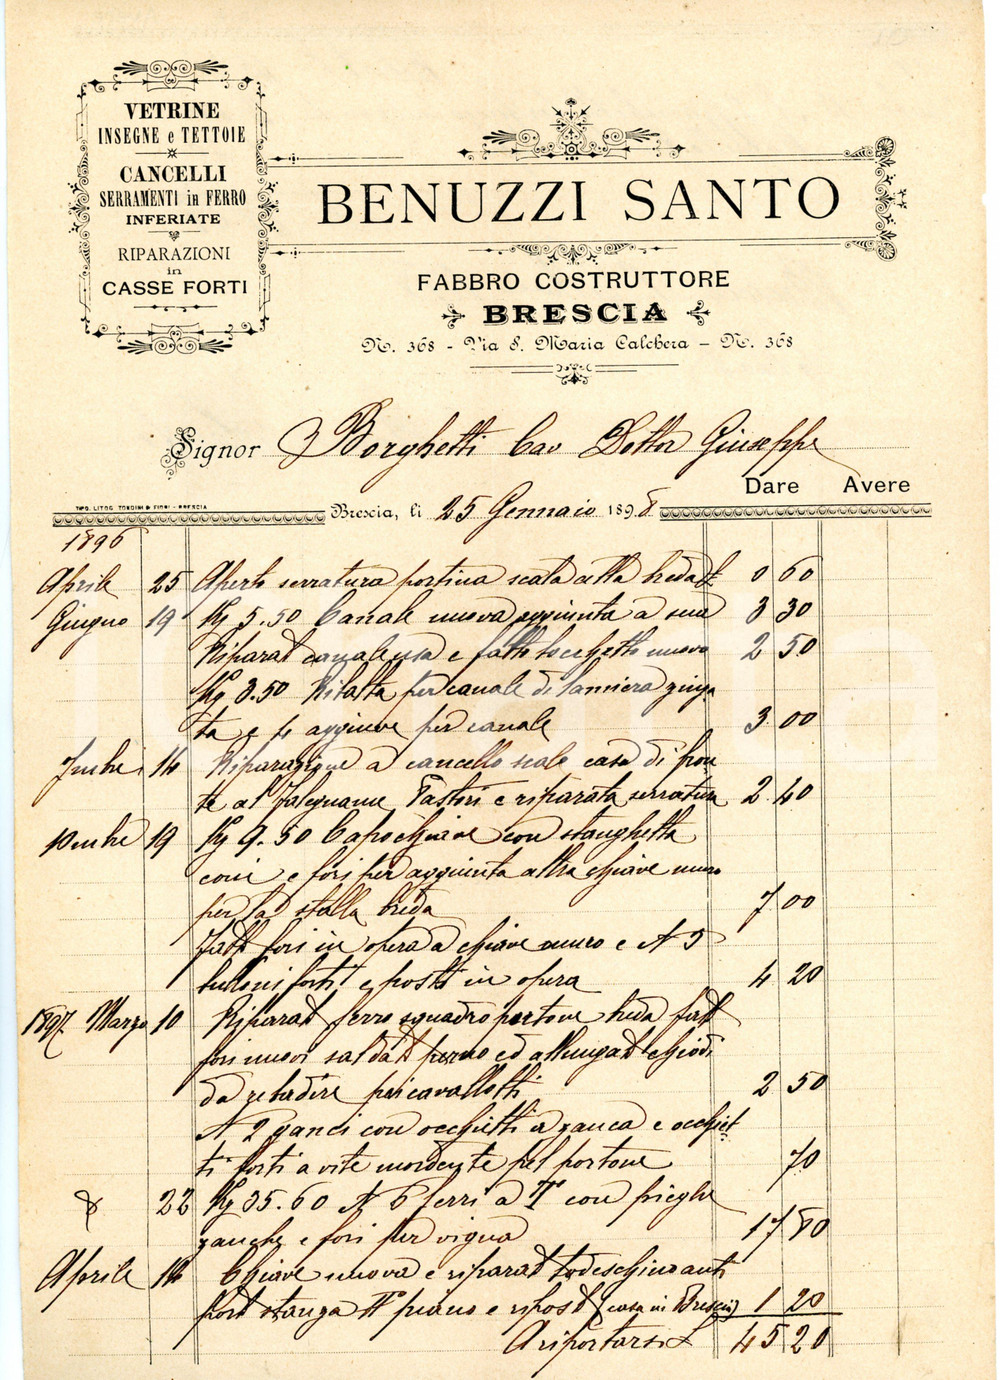 VETRINE
INSEGNE e TETTOIE
CANCELLI
SERRAMENTI in FERRO
INFERIATE
RIPARAZIONI
in
CASSE FORTI
BENUZZI SANTO
FABBRO COSTRUTTORE
BRESCIA
N. 368 - Via S. Maria Calchera - N. 368
Signor Borghetti Cav Dottor Giuseppe
Dare Avere
TIPO. LITOG. TONDINI & FIORI - BRESCIA
Brescia, li 25 Gennaio 1898
1896
Aprile 25 Aperto serratura portina scala alla breda £ 0 60
Giugno 19 Kg 5.50 Canale nuova aggiunta a sua 3 30
Riparat canale usa e fatto nuovo 2 50
Kg 3.50 Ribalta per canale di lamiera zinga
ta e aggiunte per canale 3 00
14 Riparazione a cancello scale casa di fron
te al falegname Pastori e riparata serratura 2 40
19 Kg 9.50 Capochiave con stanghetta
coni e fori per aggiunta altra chiave muro
per la stalla breda 7 00
Fatt fori in opera a chiave muro e N 3
buloni forti e posti in opera 4 20
1897 Marzo 10 Riparat ferro squadro portone breda fatt
fori nuovi saldat perno ed allungat chiodi
da ribadire pei cavallotti 2 50
N 2 ganci con occhietti a zanca e occhiet
ti forti a vite mordente pel portone 70
22 Kg 35.60 N 6 ferri a T con pieghe
zanche e fori per vigna 17 80
Aprile 14 Chiave nuova e riparat anti
port stanza II° piano e ripost (casa in Brescia) 1 20
A riportarsi £ 45 20